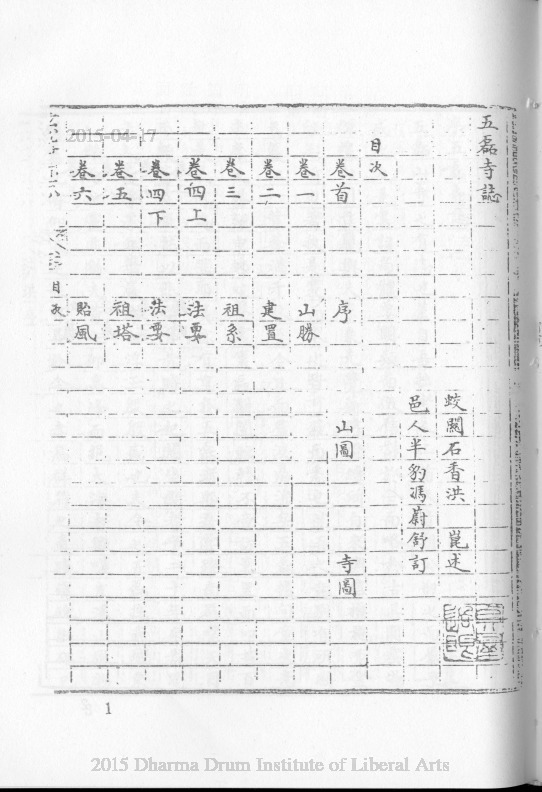 五磊寺誌
蛟關石香洪 崑述
邑人半豹馮蔚舒訂
目次
卷首 序 山圖 寺圖
卷一 山勝
卷二 建置
卷三 祖系
卷四上 法要
卷四下 法要
卷五 祖塔
卷六 貽風
目次
2015-04-17
1
2015 Dharma Drum Institute of Liberal Arts